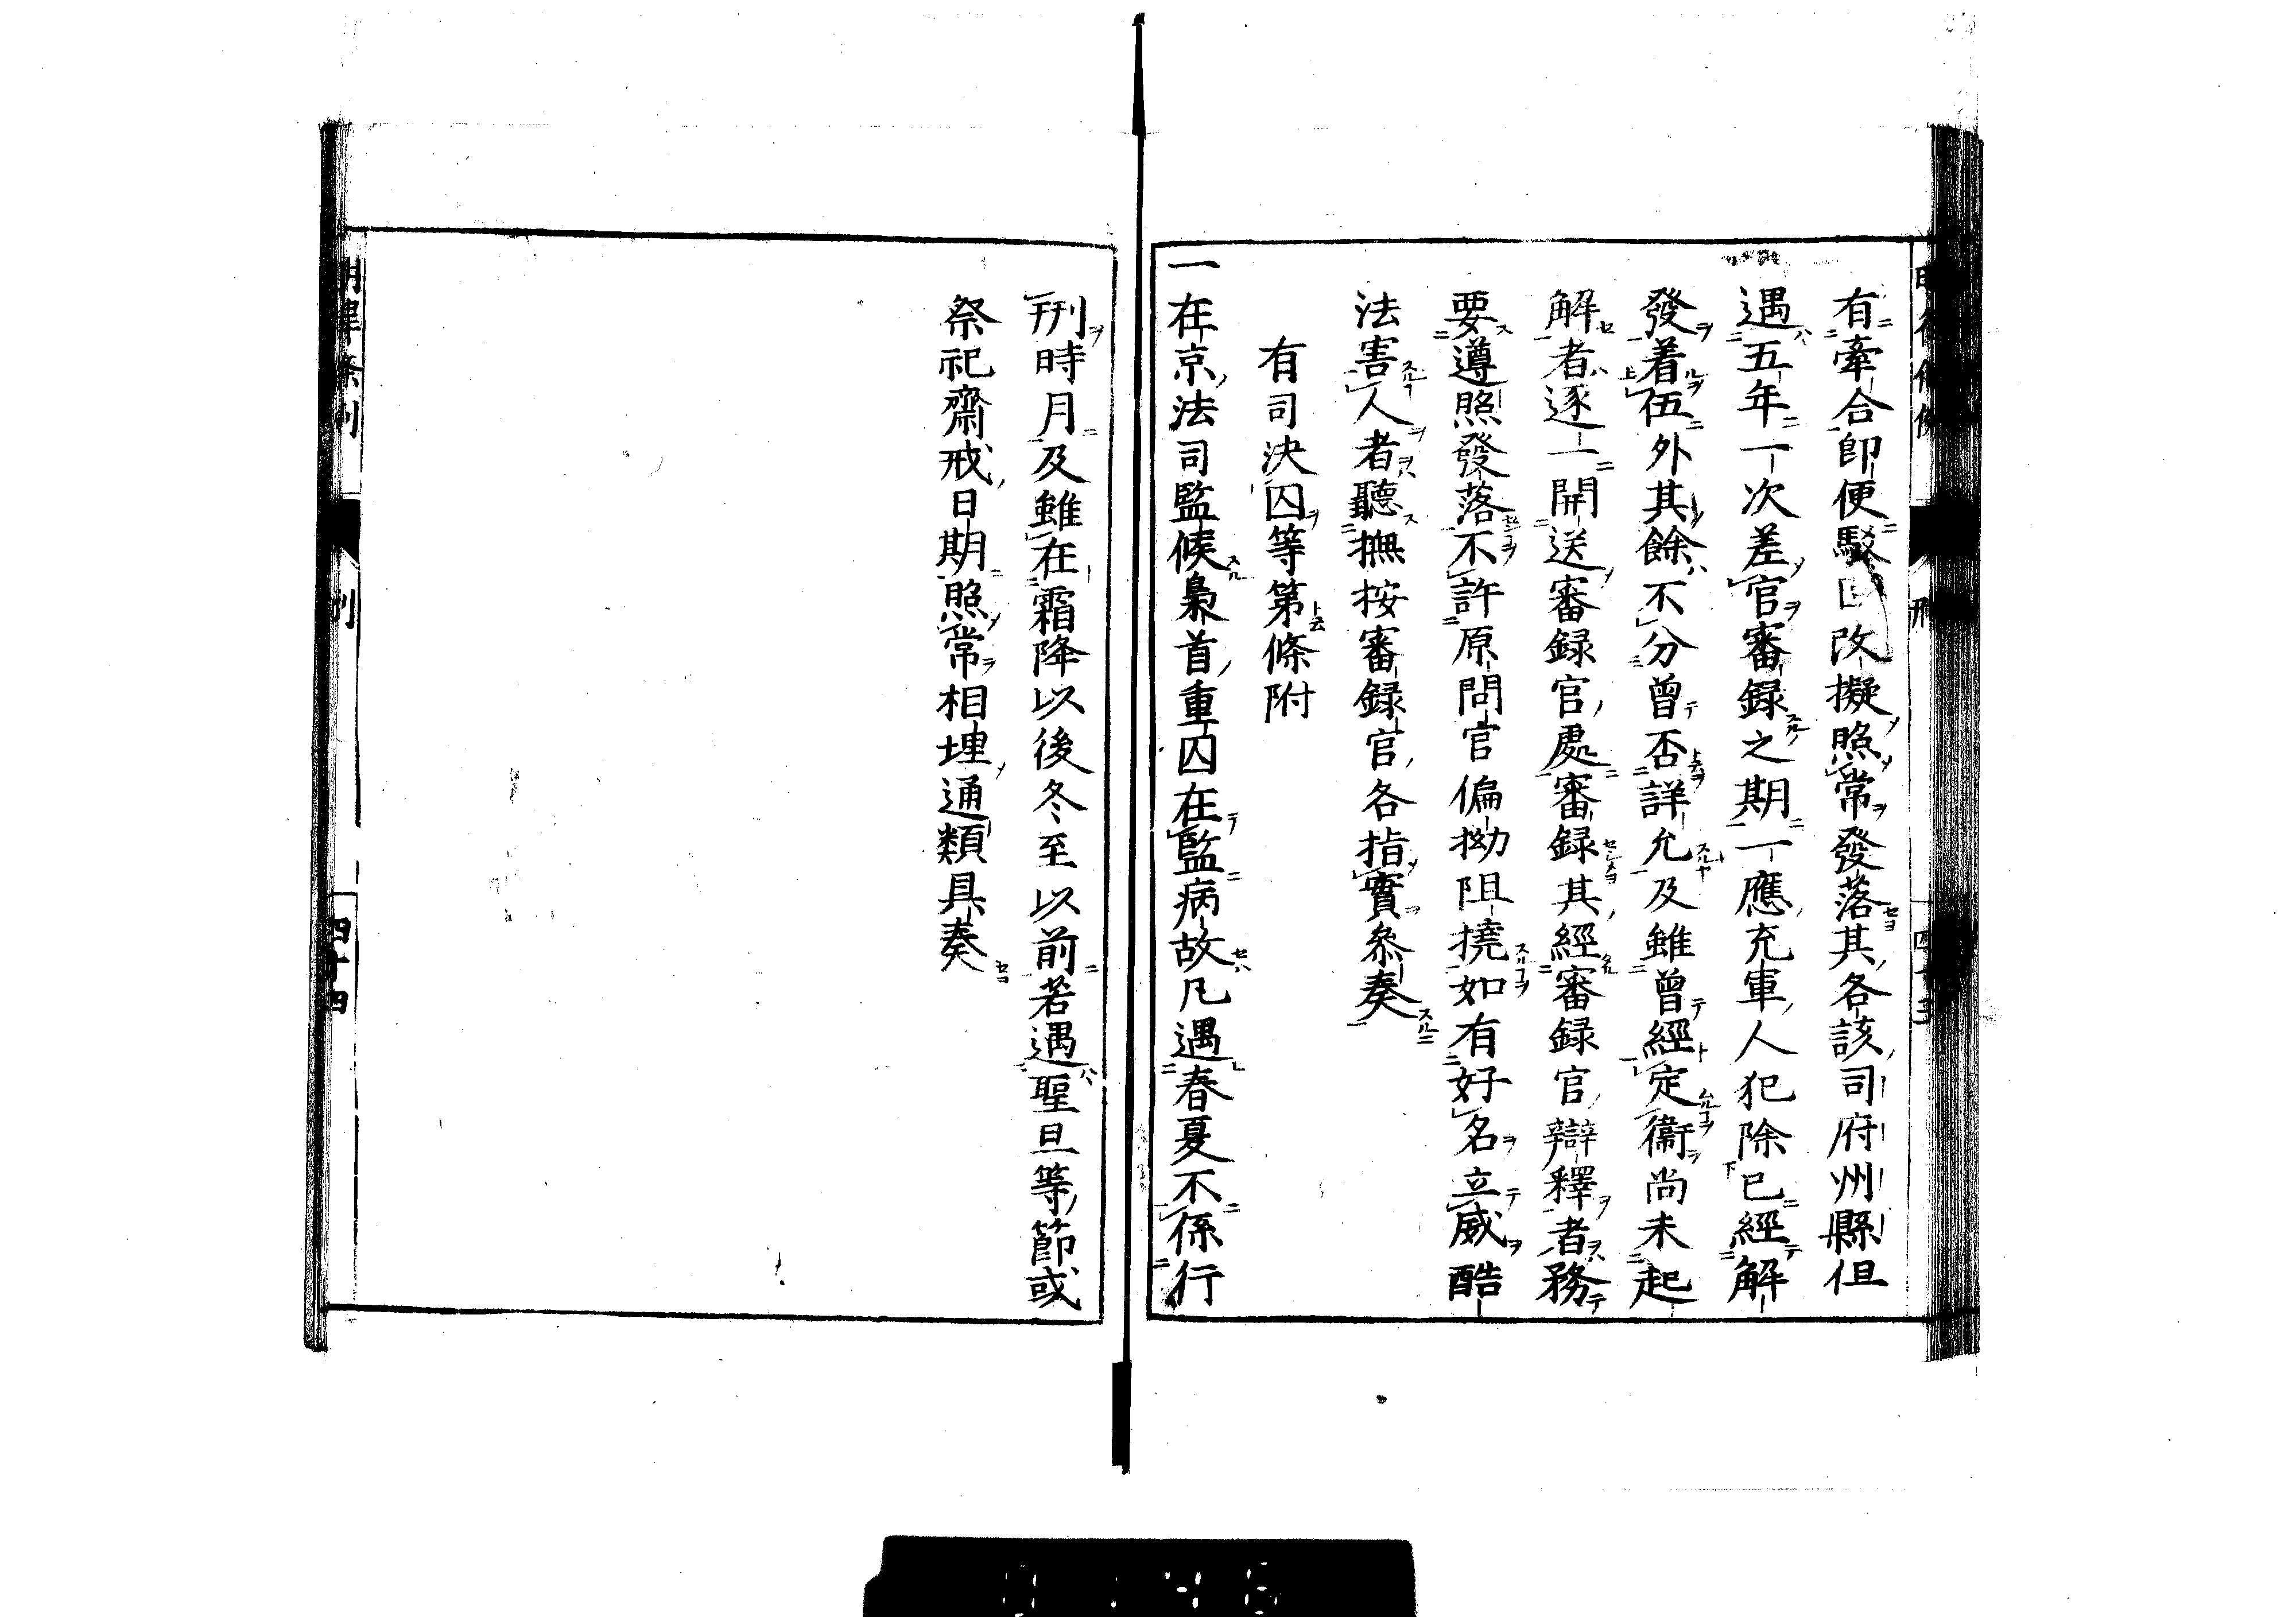 有牽合即便駁回改擬照常發落其各該司府州縣但
遇五年一次差官審録之期一應充軍人犯除已經解
發着伍外其餘不分曾否詳允及雖曾經定衞尚未起
解者逐一開送審録官處審録其經審録官辯釋者務
要遵照發落不許原問官偏拗阻撓如有好名立威酷
法害人者聽撫按審録官各指實叅奏
有司決囚等第條附
一在京法司監候梟首重囚在監病故凡遇春夏不係行
刑時月及雖在霜降以後冬至以前若遇聖旦等節或
祭祀齋戒日期照常相埋通類具奏
四十四